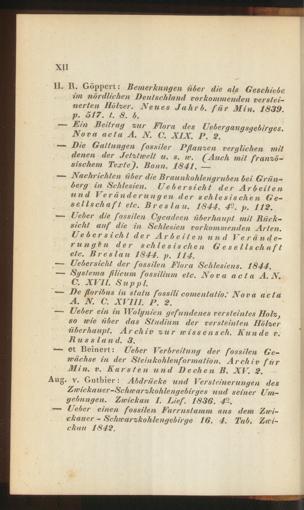 XII
H. R. Göppert: Bemerkungen über die als Geschiebe
im nördlichen Deutschland vorkommenden verstei-
nerten Hölzer. Neues Jahrb. für Min. 1839.
p. 517. t. 8. b.
— Ein Beitrag zur Flora des Uebergangsgebirges.
Nova acta A. N. C. XIX. P. 2.
— Die Gattungen fossiler Pflanzen verglichen mit
denen der Jetztwelt u. s. w. (Auch mit franzö-
sischem Texte). Bonn. 1841. —
— Nachrichten über die Braunkohlengruben bei Grün-
berg in Schlesien. Uebersicht der Arbeiten
und Veränderungen der schlesischen Ge-
sellschaft etc. Breslau. 1844. 4º. p. 112.
— Ueber die fossilen Cycadeen überhaupt mit Rück-
sicht auf die in Schlesien vorkommenden Arten.
Uebersicht der Arbeiten und Verände-
rungen der schlesischen Gesellschaft
etc. Breslau 1844. p. 114.
— Uebersicht der fossilen Flora Schlesiens. 1844.
— Systema filicum fossilium etc. Nova acta A. N.
C. XVII. Suppl.
— De floribus in statu fossili comentatio: Nova acta
A. N. C. XVIII. P. 2.
— Ueber ein in Wolynien gefundenes versteintes Holz,
so wie über das Studium der versteinten Hölzer
überhaupt. Archiv zur wissensch. Kunde v.
Russland. 3.
— et Beinert: Ueber Verbreitung der fossilen Ge-
wächse in der Steinkohlenformation. Archiv für
Min. v. Karsten und Dechen B. XV. 2.
Aug. v. Guthier: Abdrücke und Versteinerungen des
Zwickauer-Schwarzkohlengebirges und seiner Um-
gebungen. Zwickau I. Lief. 1836. 4º.
— Ueber einen fossilen Farrnstamm aus dem Zwi-
ckauer-Schwarzkohlengebirge 16. 4. Tab. Zwi-
ckau 1842.